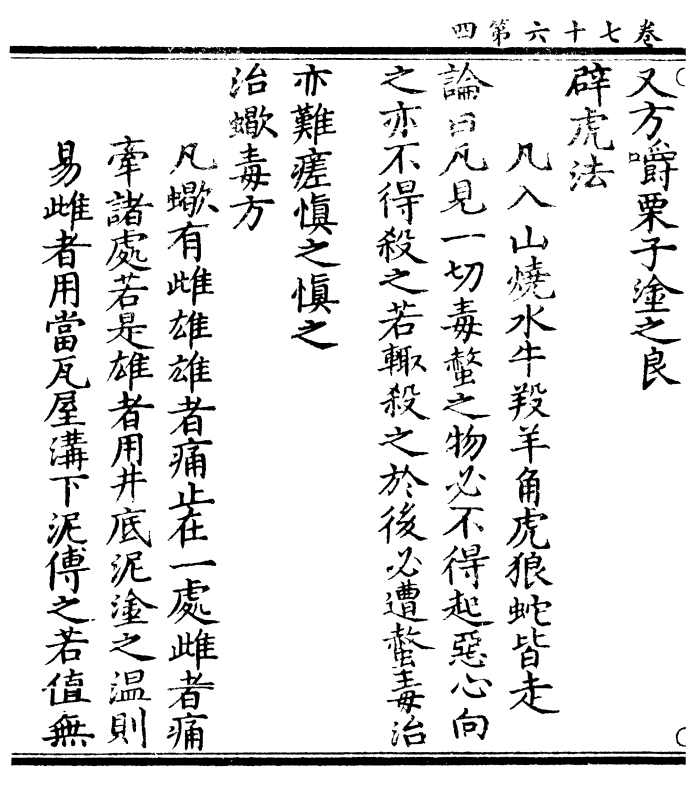 卷七十六第四
又方嚼栗子塗之良
辟虎法
凡入山燒水牛羖羊角虎狼蛇皆走
論曰凡見一切毒螫之物必不得起惡心向
之亦不得殺之若輙殺之於後必遭螫毒治
亦難瘥慎之慎之
治蠍毒方
凡蠍有雌雄雄者痛止在一處雌者痛
牽諸處若是雄者用井底泥塗之温則
易雌者用當瓦屋溝下泥傅之若值無